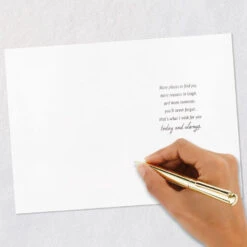 May places to find you
many reasons to laugh,
and more moments
you'll never forget...
that's what I wish for you
today and always.